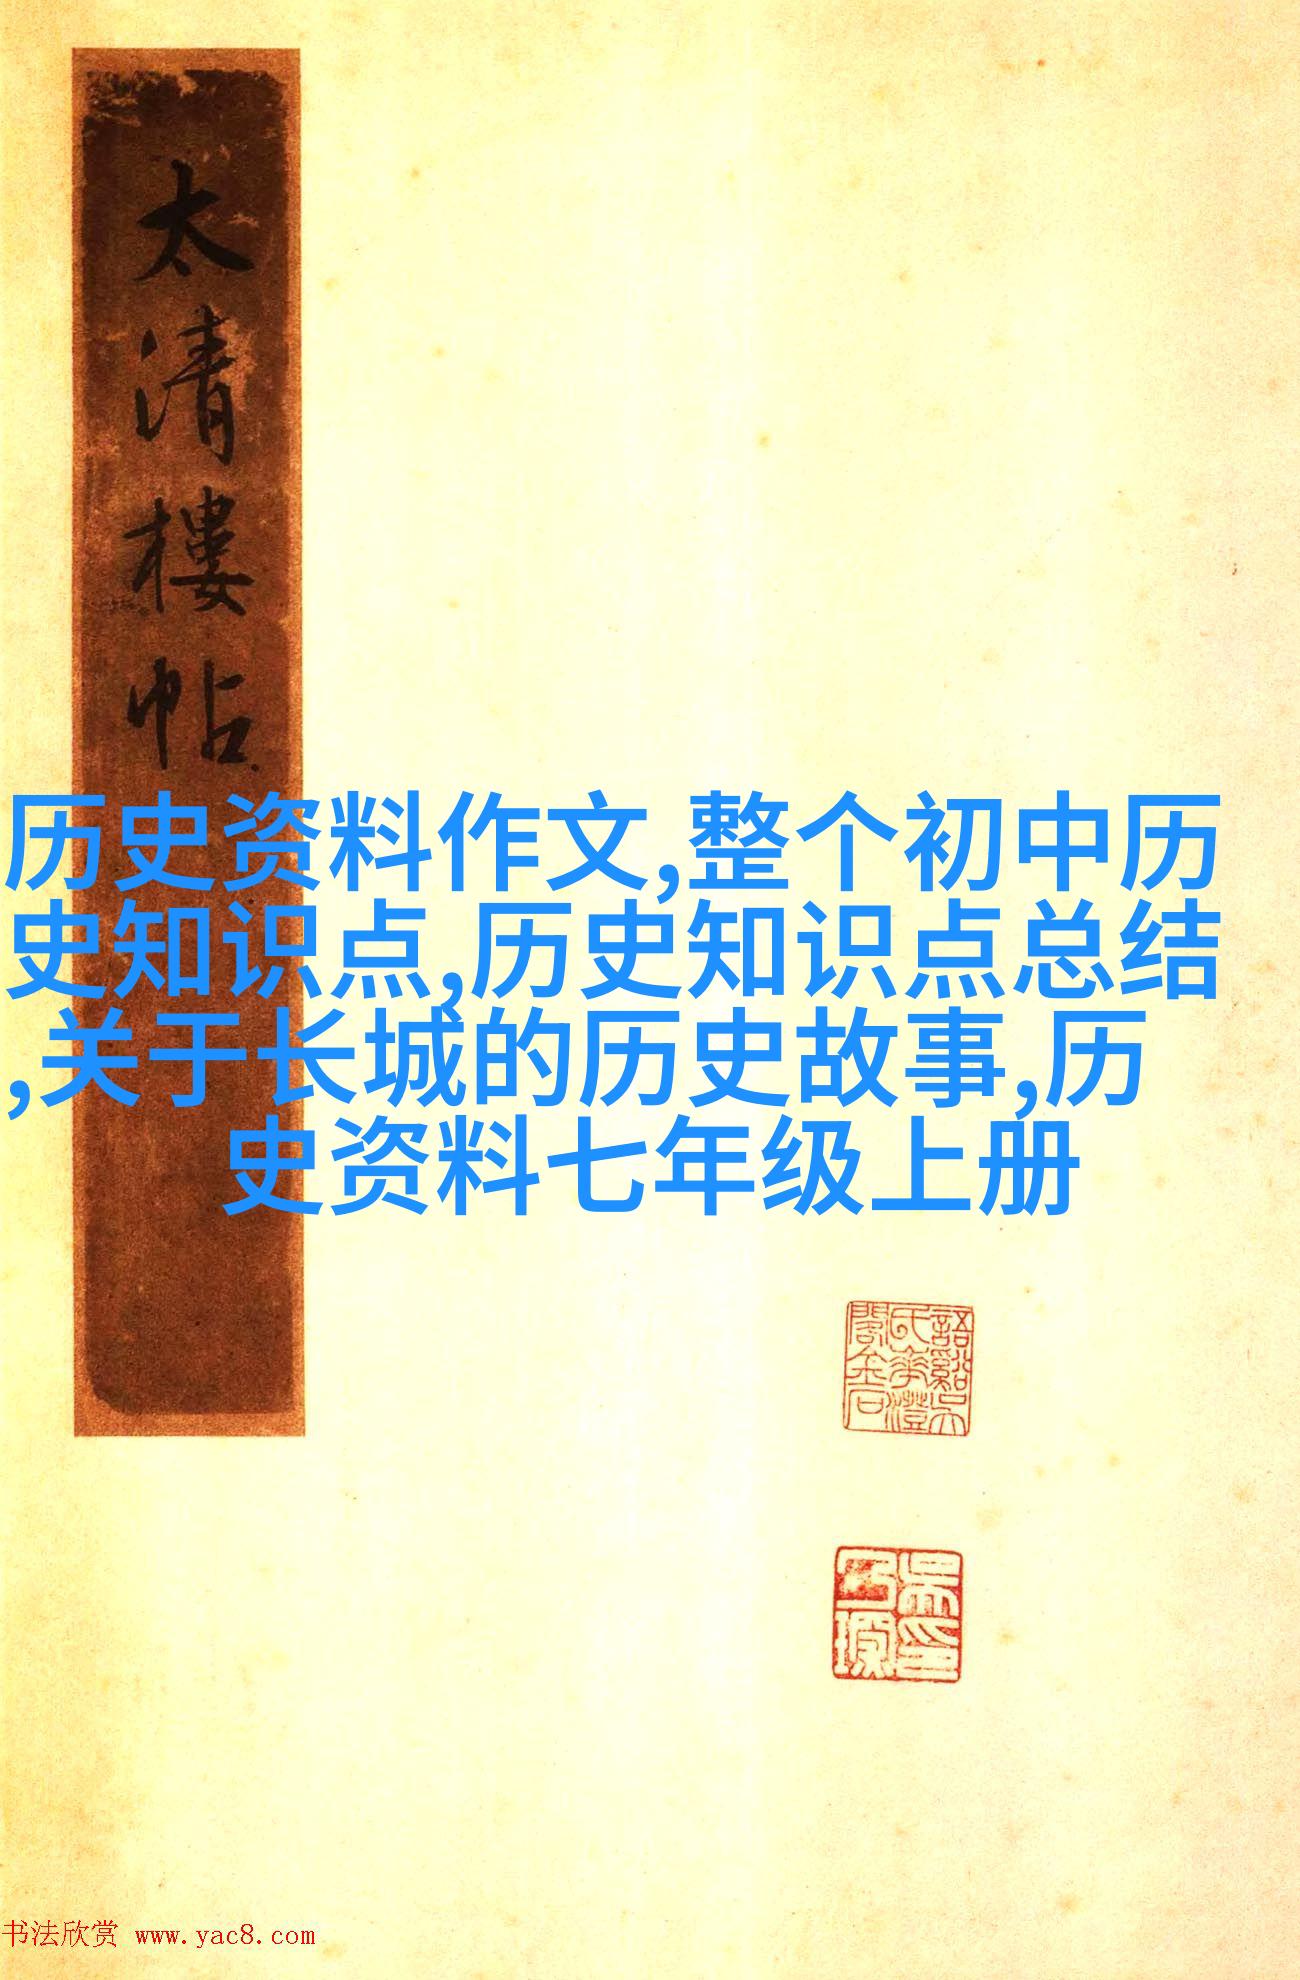 太清樓帖
历史资料作文,整个初中历
史知识点,历史知识点总结
,关于长城的历史故事,历
史资料七年级上册
语谿
吴
书法欣赏 www.yac8.com